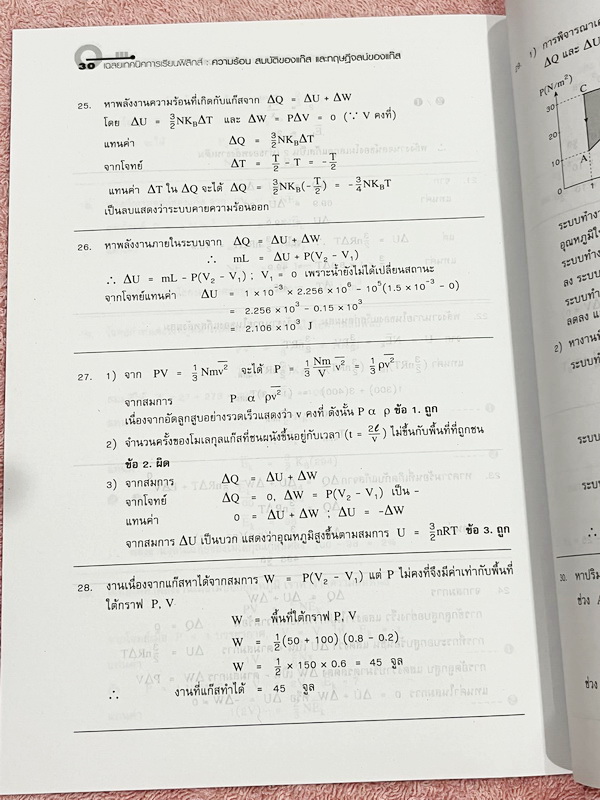 30 เฉลยเทคนิคการเรียนฟิสิกส์ : ความร้อน สมบัติของแก๊ส และทฤษฎีจลน์ของแก๊ส
25. หาพลังงานความร้อนที่เกิดกับแก๊สจาก ΔQ = ΔU + ΔW
โดย ΔU = 3/2 NK_BΔT และ ΔW = PΔV = 0 (∵ V คงที่)
แทนค่า ΔQ = 3/2 NK_BΔT
จากโจทย์ ΔT = T/2 − T = −T/2
แทนค่า ΔT ใน ΔQ จะได้ ΔQ = 3/2 NK_B(−T/2) = −3/4 NK_BT
เป็นลบแสดงว่าระบบคายความร้อนออก
26. หาพลังงานภายในระบบจาก ΔQ = ΔU + ΔW
∴ mL = ΔU + P(V₂ − V₁)
∴ ΔU = mL − P(V₂ − V₁) ; V₁ = 0 เพราะน้ำยังไม่ได้เปลี่ยนสถานะ
จากโจทย์แทนค่า ΔU = 1 × 10⁻³ × 2.256 × 10⁶ − 10⁵(1.5 × 10⁻³ − 0)
= 2.256 × 10³ − 0.15 × 10³
= 2.106 × 10³ J
27. 1) จาก PV = 1/3 Nmv̅² จะได้ P = 1/3 Nm/V v̅² = 1/3 ρv̅²
จากสมการ P α ρv̅²
เนื่องจากอัดลูกสูบอย่างรวดเร็วแสดงว่า v คงที่ ดังนั้น P α ρ ข้อ 1. ถูก
2) จำนวนครั้งของโมเลกุลแก๊สที่ชนผนังขึ้นอยู่กับเวลา (t = 2ℓ/v) ไม่ขึ้นกับพื้นที่ที่ถูกชน
ข้อ 2. ผิด
3) จากสมการ ΔQ = ΔU + ΔW
จากโจทย์ ΔQ = 0, ΔW = P(V₂ − V₁) เป็น −
แทนค่า 0 = ΔU + ΔW ; ΔU = −ΔW
จากสมการ ΔU เป็นบวก แสดงว่าอุณหภูมิสูงขึ้นตามสมการ U = 3/2 nRT ข้อ 3. ถูก
28. งานเนื่องจากแก๊สหาได้จากสมการ W = P(V₂ − V₁) แต่ P ไม่คงที่จึงมีค่าเท่ากับพื้นที่
ใต้กราฟ P, V
W = พื้นที่ใต้กราฟ P, V
W = 1/2 (50 + 100) (0.8 − 0.2)
W = 1/2 × 150 × 0.6 = 45 จูล
∴ งานที่แก๊สทำได้ = 45 จูล
1) การพิจารณาเค
ΔQ และ ΔU
P(N/m²)
30
C
20
10
A
0
1
ระบบทำงา
อุณหภูมิใ
ระบบทำ
ลง ระบบ
ระบบทำ
ลดลง แ
2) หางานที่
ระบบทำ
ระบบ
ระบบ
∴
30. หาปริม
ช่วง A
ช่วง